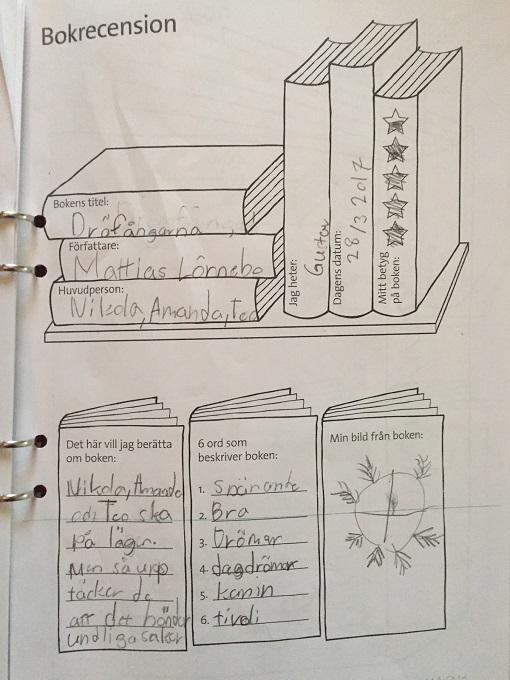 Bokrecension
Bokens titel:
Dröfångarna
Författare:
Mattias Lönnebo
Huvudperson:
Nikola, Amanda, Teo
Jag heter: Gustav
Dagens datum: 28/3 2017
Mitt betyg
på boken:
Det här vill jag berätta
om boken:
Nikola, Amanda
och Teo ska
på läger.
Men så upp
täcker de
att det händer
undliga saker
6 ord som
beskriver boken:
1. Spänande
2. Bra
3. Drömar
4. dagdrömar
5. kanin
6. tivoli
Min bild från boken: